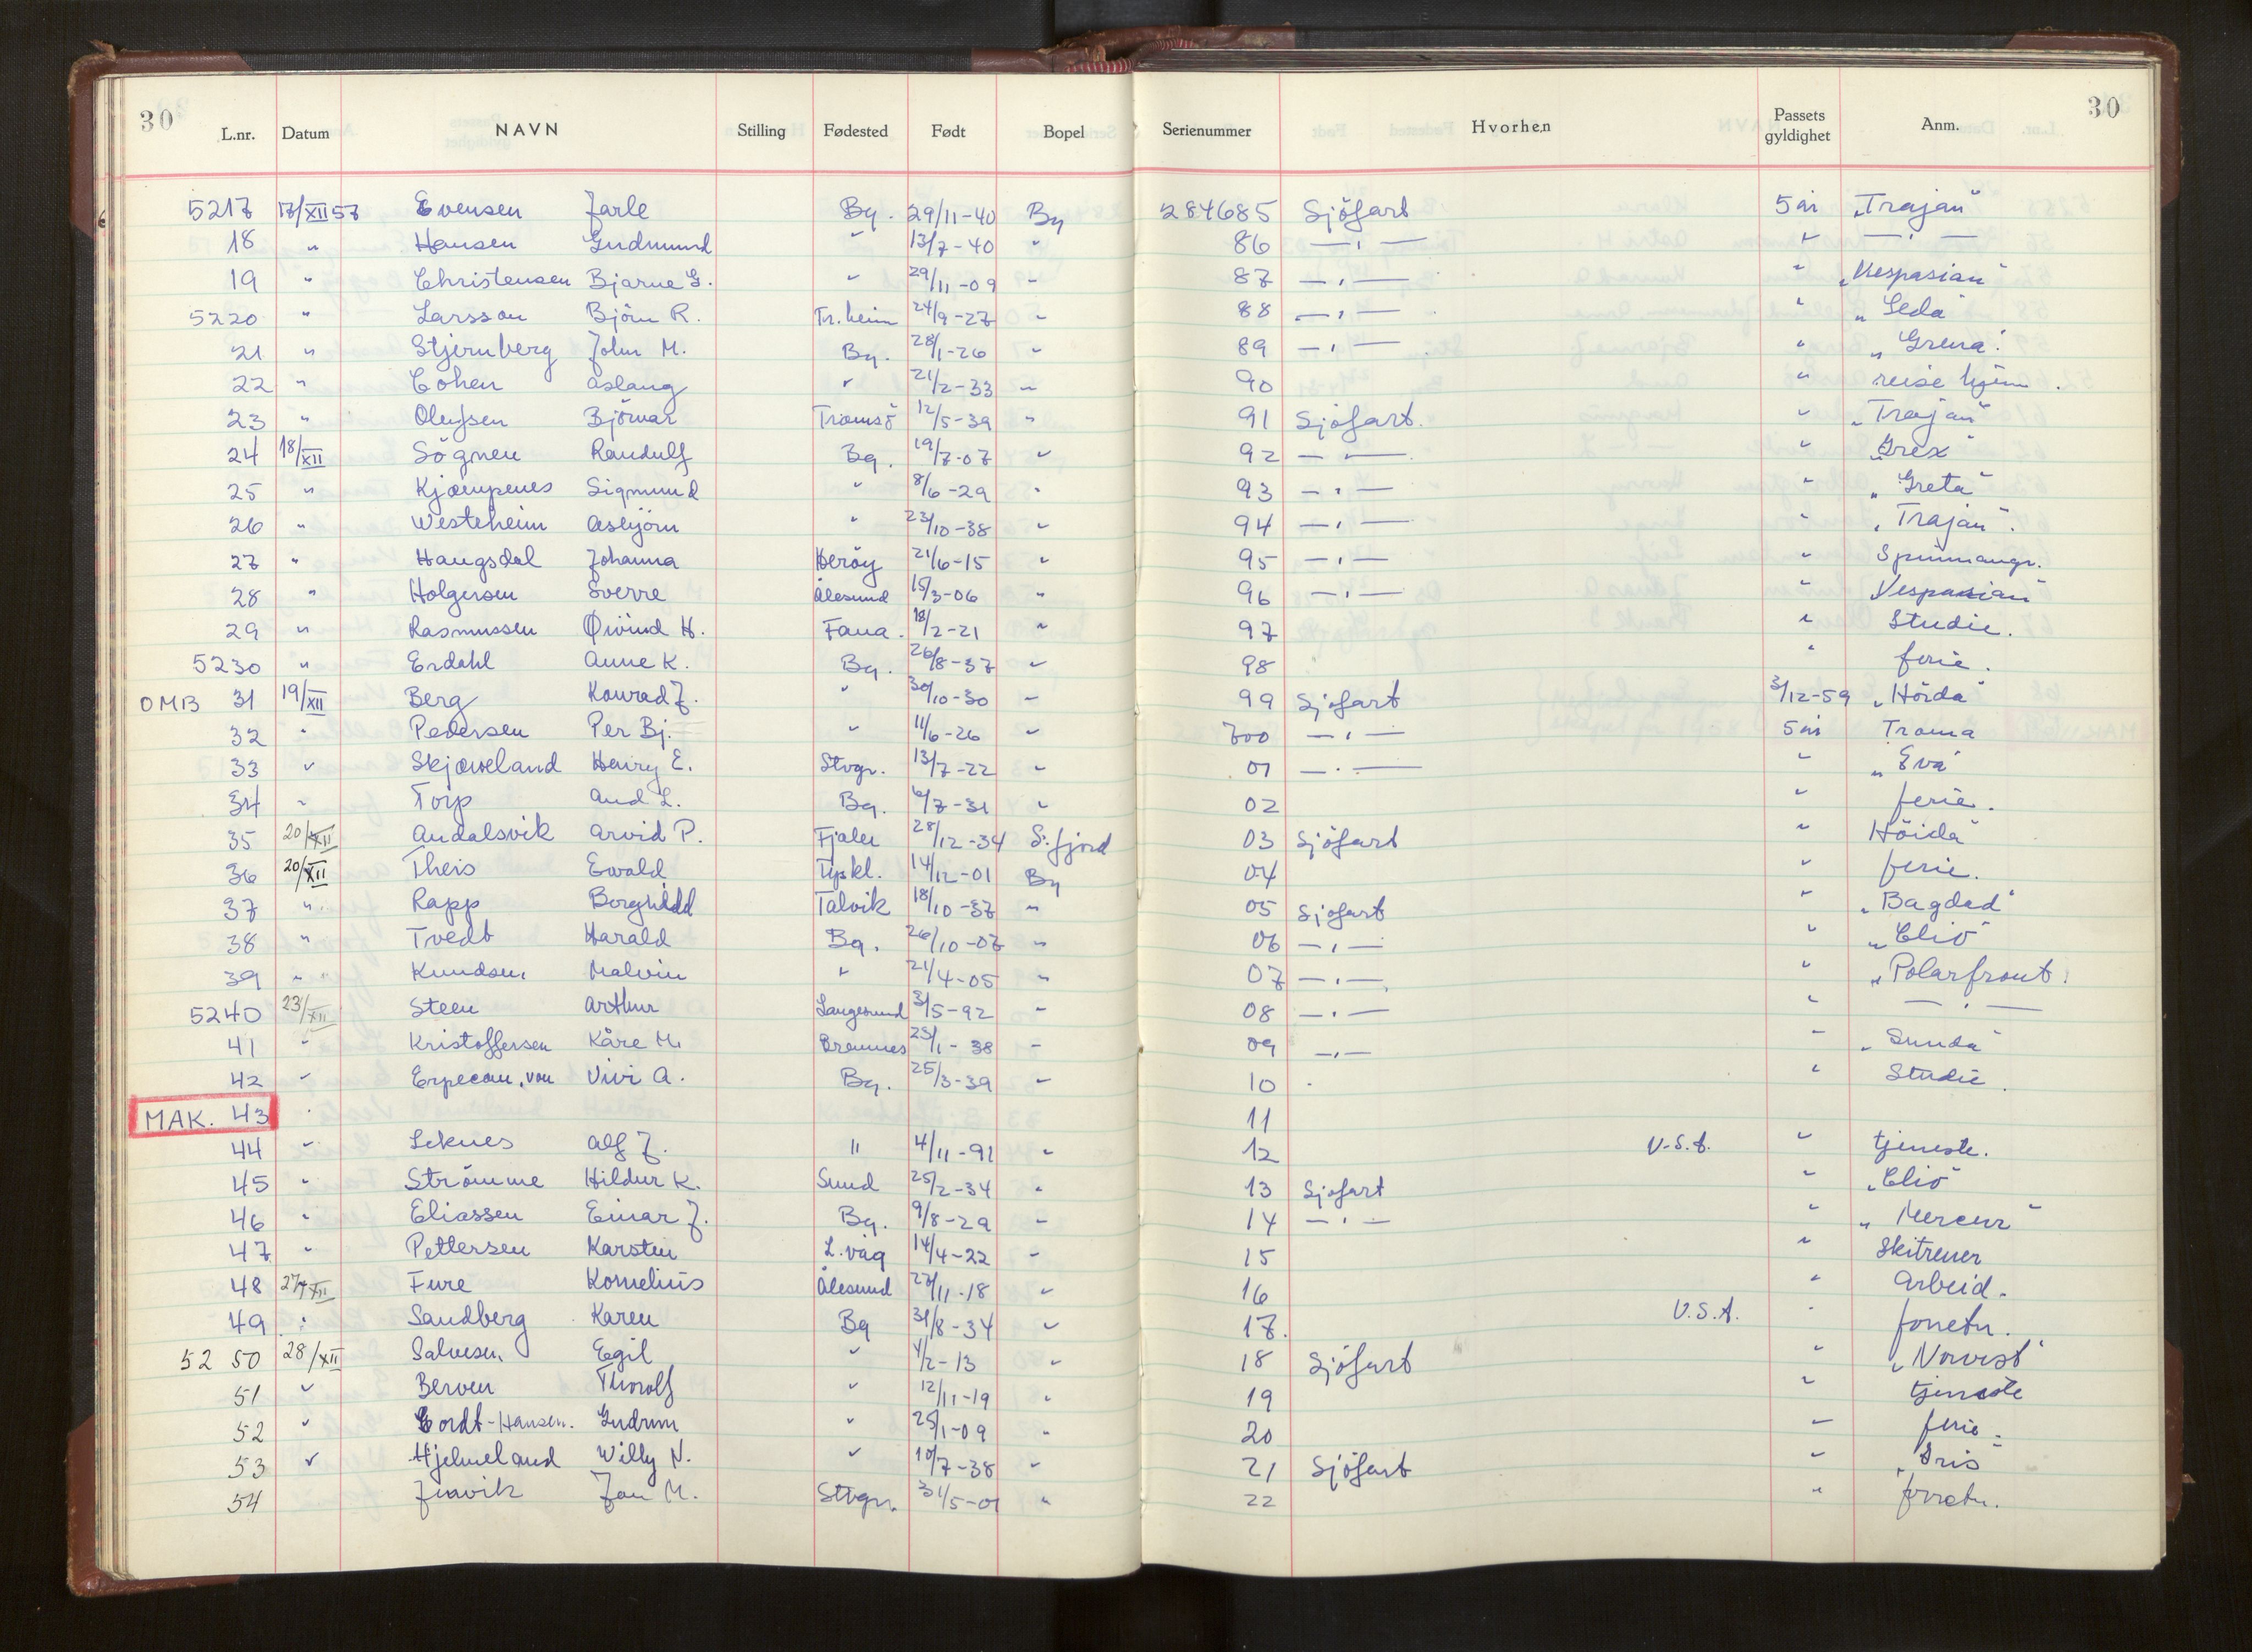 30 30
L.nr. Datum NAVN Stilling Fødested Født Bopel Serienummer Hvorhen Passets gyldighet Anm.
5217 17/XII 57 Evensen Jarle Bg. 29/11-40 Bg 284685 Sjöfart 5 år „Trajan“
18 " Hansen Gudmund " 13/7-40 " 86 —"— " —"—
19 " Christensen Bjarne G. " 29/11-09 " 87 —"— " „Vespasian“
5220 " Larsson Björn R. Tr.heim 24/9-27 " 88 —"— " „Leda“
21 " Stjernberg John M. Bg. 28/1-26 " 89 —"— " „Grena“
22 " Cohen Aslaug " 21/2-33 " 90 " reise hjem.
23 " Olufsen Björnar Tromsö 12/5-39 " 91 Sjöfart. " „Trajan“
24 18/XII Sögnen Randulf Bg. 19/7-07 " 92 —"— " „Brex“
25 " Kjæmpenes Sigmund " 8/6-29 " 93 —"— " „Greta“
26 " Westeheim Asbjörn " 23/10-38 " 94 —"— " „Trajan“.
27 " Haugsdal Johanna Heröy 21/6-15 " 95 —"— " Spinnangr.
28 " Holgersen Sverre Ålesund 15/3-06 " 96 —"— " Vespasian“
29 " Rasmussen Øivind H. Fana. 18/2-21 " 97 " Studie.
5230 " Erdahl Anne K. Bg. 26/8-37 " 98 " ferie.
OMB 31 19/XII Berg Konrad J. " 30/10-30 " 99 Sjöfart 3/12-59 „Hörda“
32 " Pedersen Per Bj. " 11/6-26 " 700 —"— 5 år Troma
33 " Skjæveland Henry E. Stvgr. 13/7-22 " 01 —"— " „Eva“
34 " Torp Aud L. Bg. 6/7-31 " 02 " ferie.
35 20/XII Andalsvik Arvid P. Fjaler 28/12-34 S.fjord 03 Sjöfart " Höida“
36 20/XII Theis Ewald Tyskl. 14/12-01 Bg 04 " ferie.
37 " Rapp Borghild Talvik 18/10-37 " 05 Sjöfart " „Bagdad“
38 " Tvedt Harald Bg. 26/10-07 " 06 —"— " „Clio“
39 " Knudsen. Malvin " 21/4-05 " 07 —"— " „Polarfront.
5240 23/XII Steen Arthur Langesund 3/5-92 " 08 —"— " —"—
41 " Kristoffersen Kåre M. Bremnes 23/1-38 " 09 —"— " „Sunda“
42 " Erpecom, von Vivi A. Bg. 25/3-39 " 10 " Studie.
MAK. 43 " 11
44 " Leknes Alf J. " 4/11-91 " 12 U.S.A. " tjeneste.
45 " Strömme Hildur K. Sund 25/2-34 " 13 Sjöfart " „Clio“
46 " Eliassen Einar J. Bg. 9/8-29 " 14 —"— " „Mercur“
47 " Pettersen Karsten L.våg 14/4-22 " 15 " Skitrener
48 27/XII Fure Kornelius Ålesund 27/11-18 " 16 " Arbeid.
49 " Sandberg Karen Bg 31/8-34 " 17. U.S.A. " forretn.
5250 28/XII Salvesen. Egil " 4/2-13 " 18 Sjöfart " „Norvest“
51 " Berven Thorolf " 12/11-19 " 19 " tjeneste
52 " Cordt-Hansen. Gudrun " 25/1-09 " 20 " ferie.
53 " Hjelmeland Willy N. " 10/7-38 " 21 Sjöfart " „Iris“
54 Juvik Jan M. Stvgr. 31/5-01 " 22 " forretn.